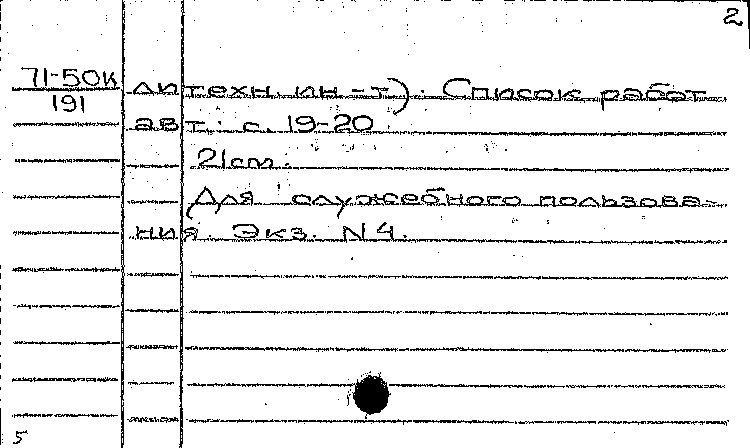 2
71-50к
191
литехн. ин-т). Список работ
авт.: с. 19-20
21см.
Для служебного пользова-
ния. Экз. N4.
5